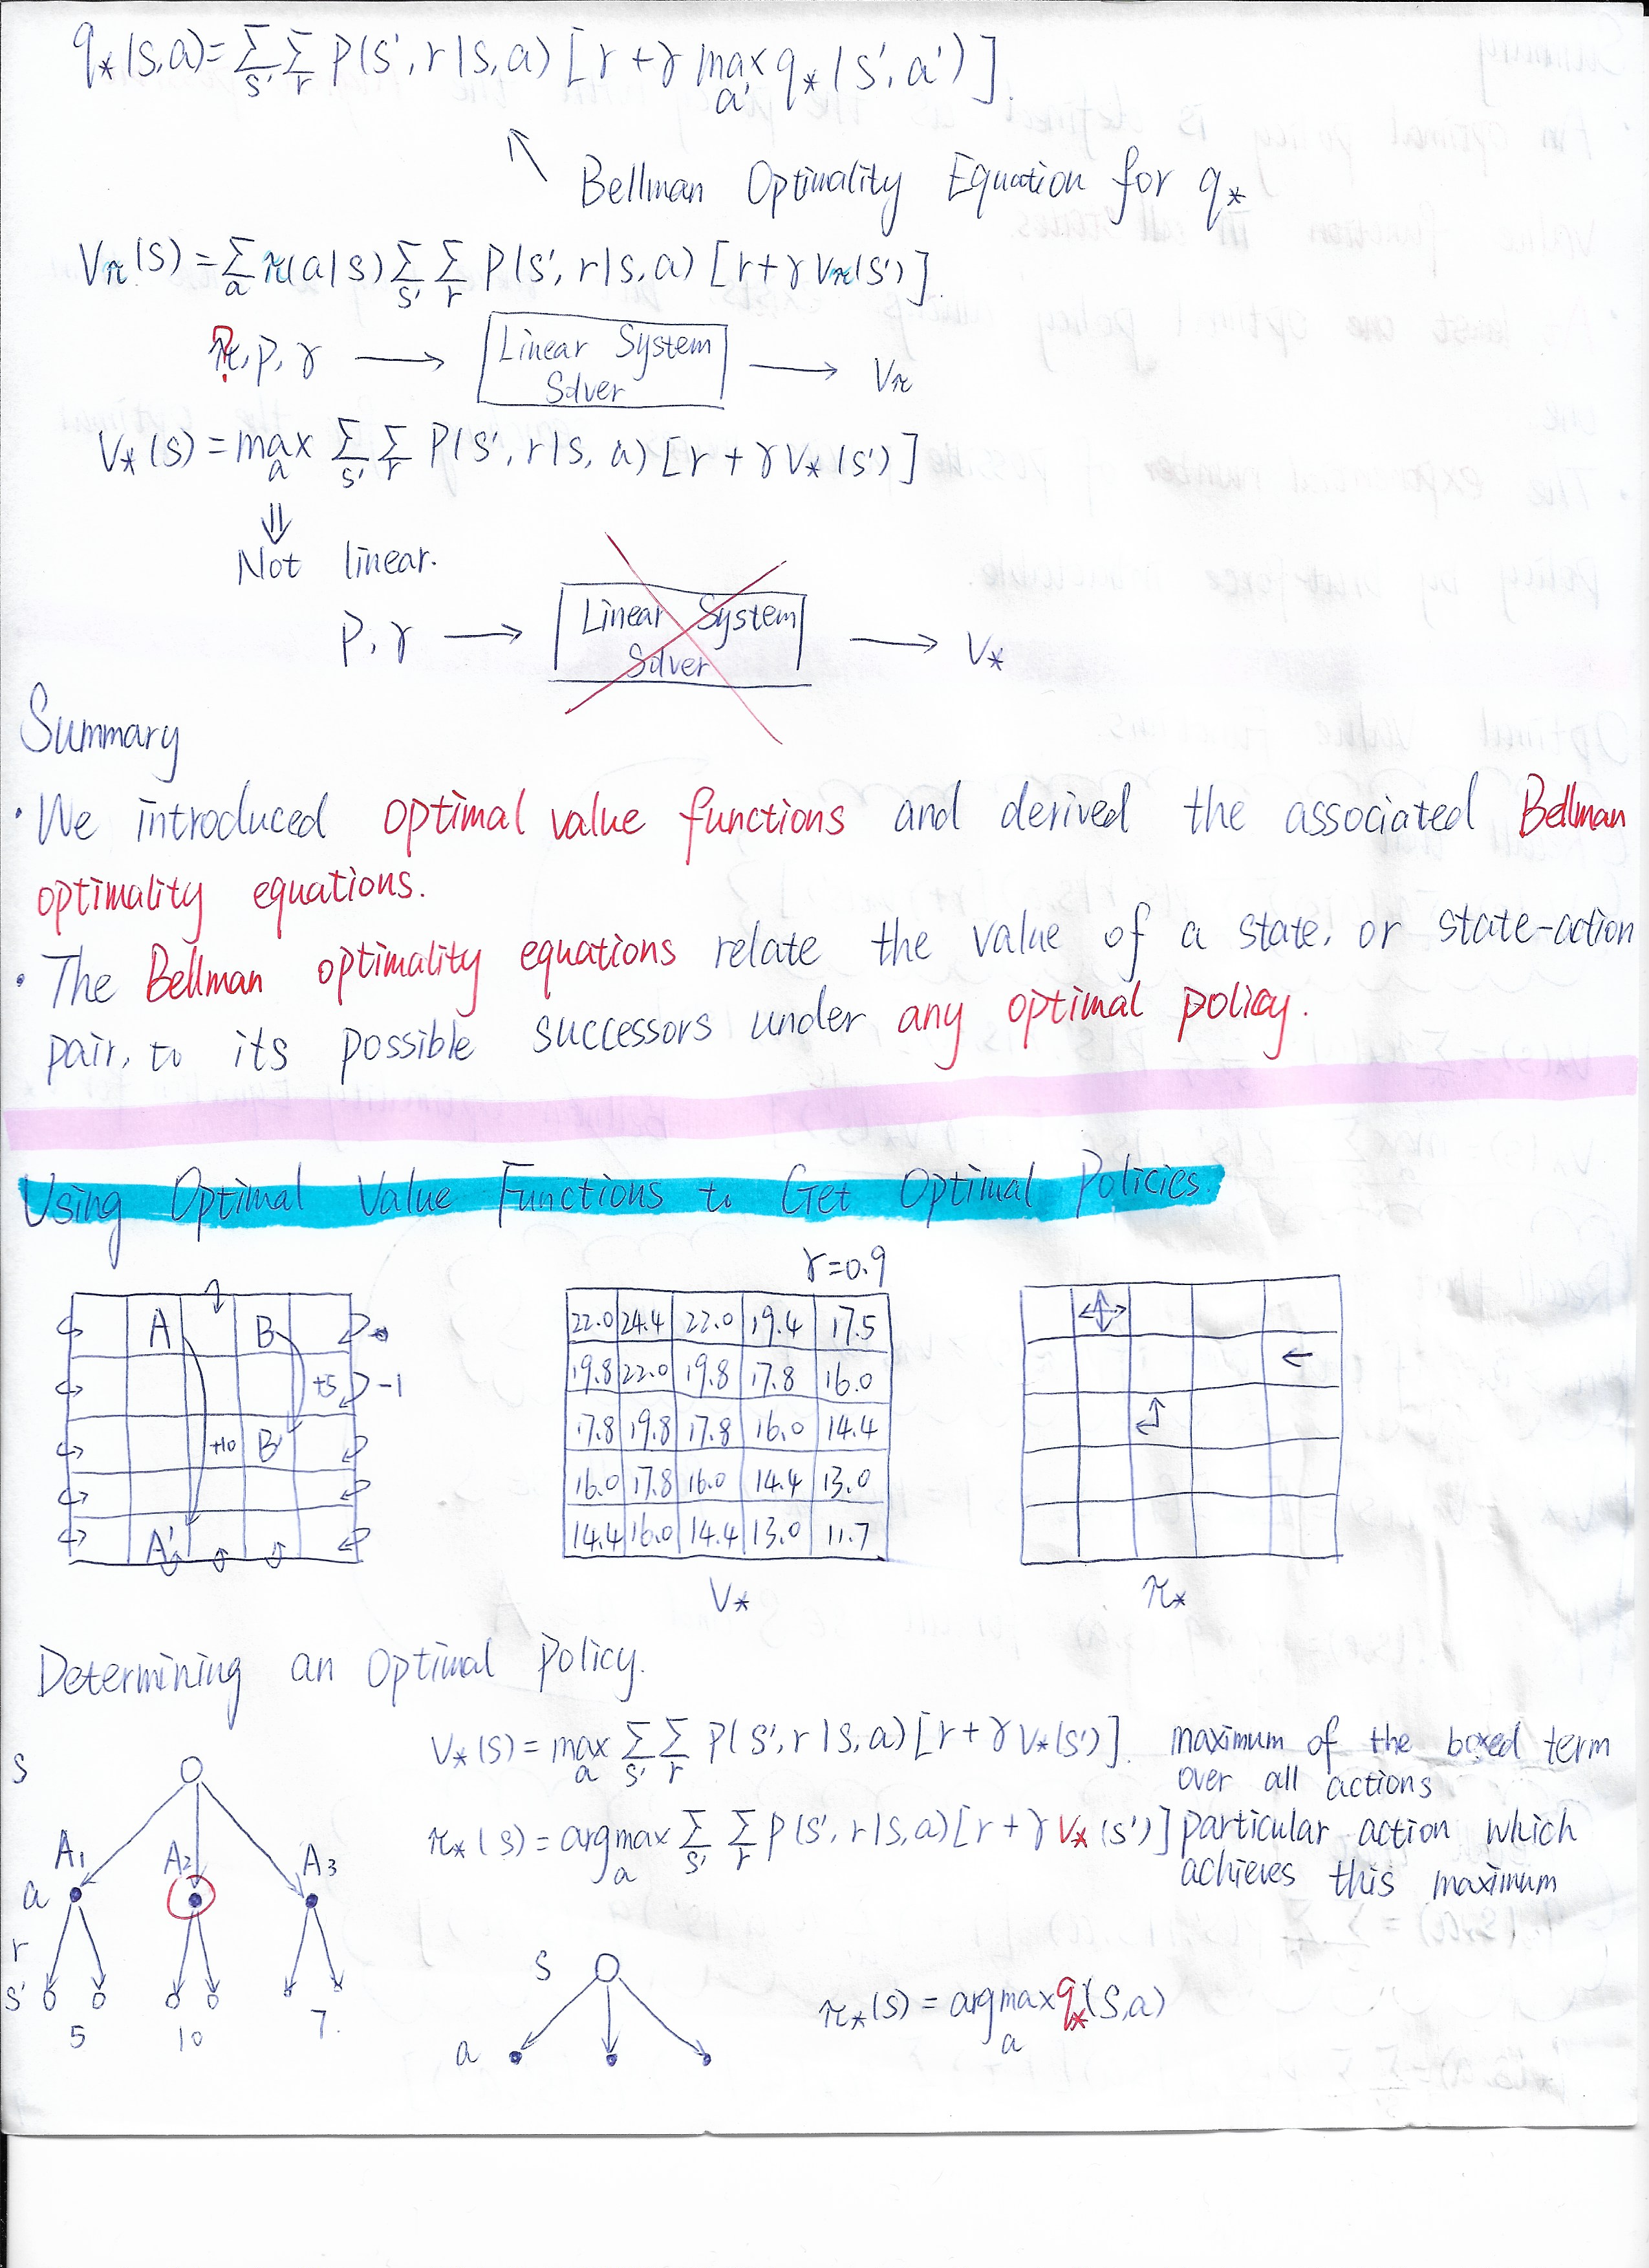 q*(s,a)=ΣΣ p(s',r|s,a)[r+γ max q*(s',a')].
s' r a'
Bellman Optimality Equation for q*
Vπ(s)=Σ π(a|s) Σ Σ p(s',r|s,a)[r+γVπ(s')].
a s' r
π, p, γ → Linear System Solver → Vπ
?
V*(s)=max Σ Σ p(s',r|s,a)[r+γV*(s')]
a s' r
⇓
Not linear.
p, γ → Linear System Solver → V*
Summary
· We introduced optimal value functions and derived the associated Bellman
optimality equations.
· The Bellman optimality equations relate the value of a state, or state-action
pair, to its possible successors under any optimal policy.
Using Optimal Value Functions to Get Optimal Policies.
γ=0.9
A B
+5 -1
+10 B'
A'
22.0 24.4 22.0 19.4 17.5
19.8 22.0 19.8 17.8 16.0
17.8 19.8 17.8 16.0 14.4
16.0 17.8 16.0 14.4 13.0
14.4 16.0 14.4 13.0 11.7
V* π*
Determining an Optimal Policy.
V*(s)=max Σ Σ p(s',r|s,a)[r+γV*(s')]. maximum of the boxed term
a s' r over all actions
π*(s)=argmax Σ Σ p(s',r|s,a)[r+γV*(s')] particular action which
a s' r achieves this maximum
s
A₁ A₂ A₃
a
r
s'
5 10 7.
s
a
π*(s)=argmax q*(s,a)
a